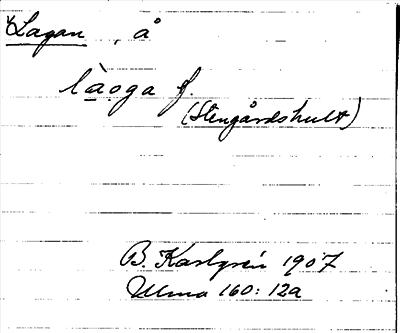 Lagan, å
làoga f.
(Stengårdshult)
B. Karlgrén 1907
Ulma 160:12a